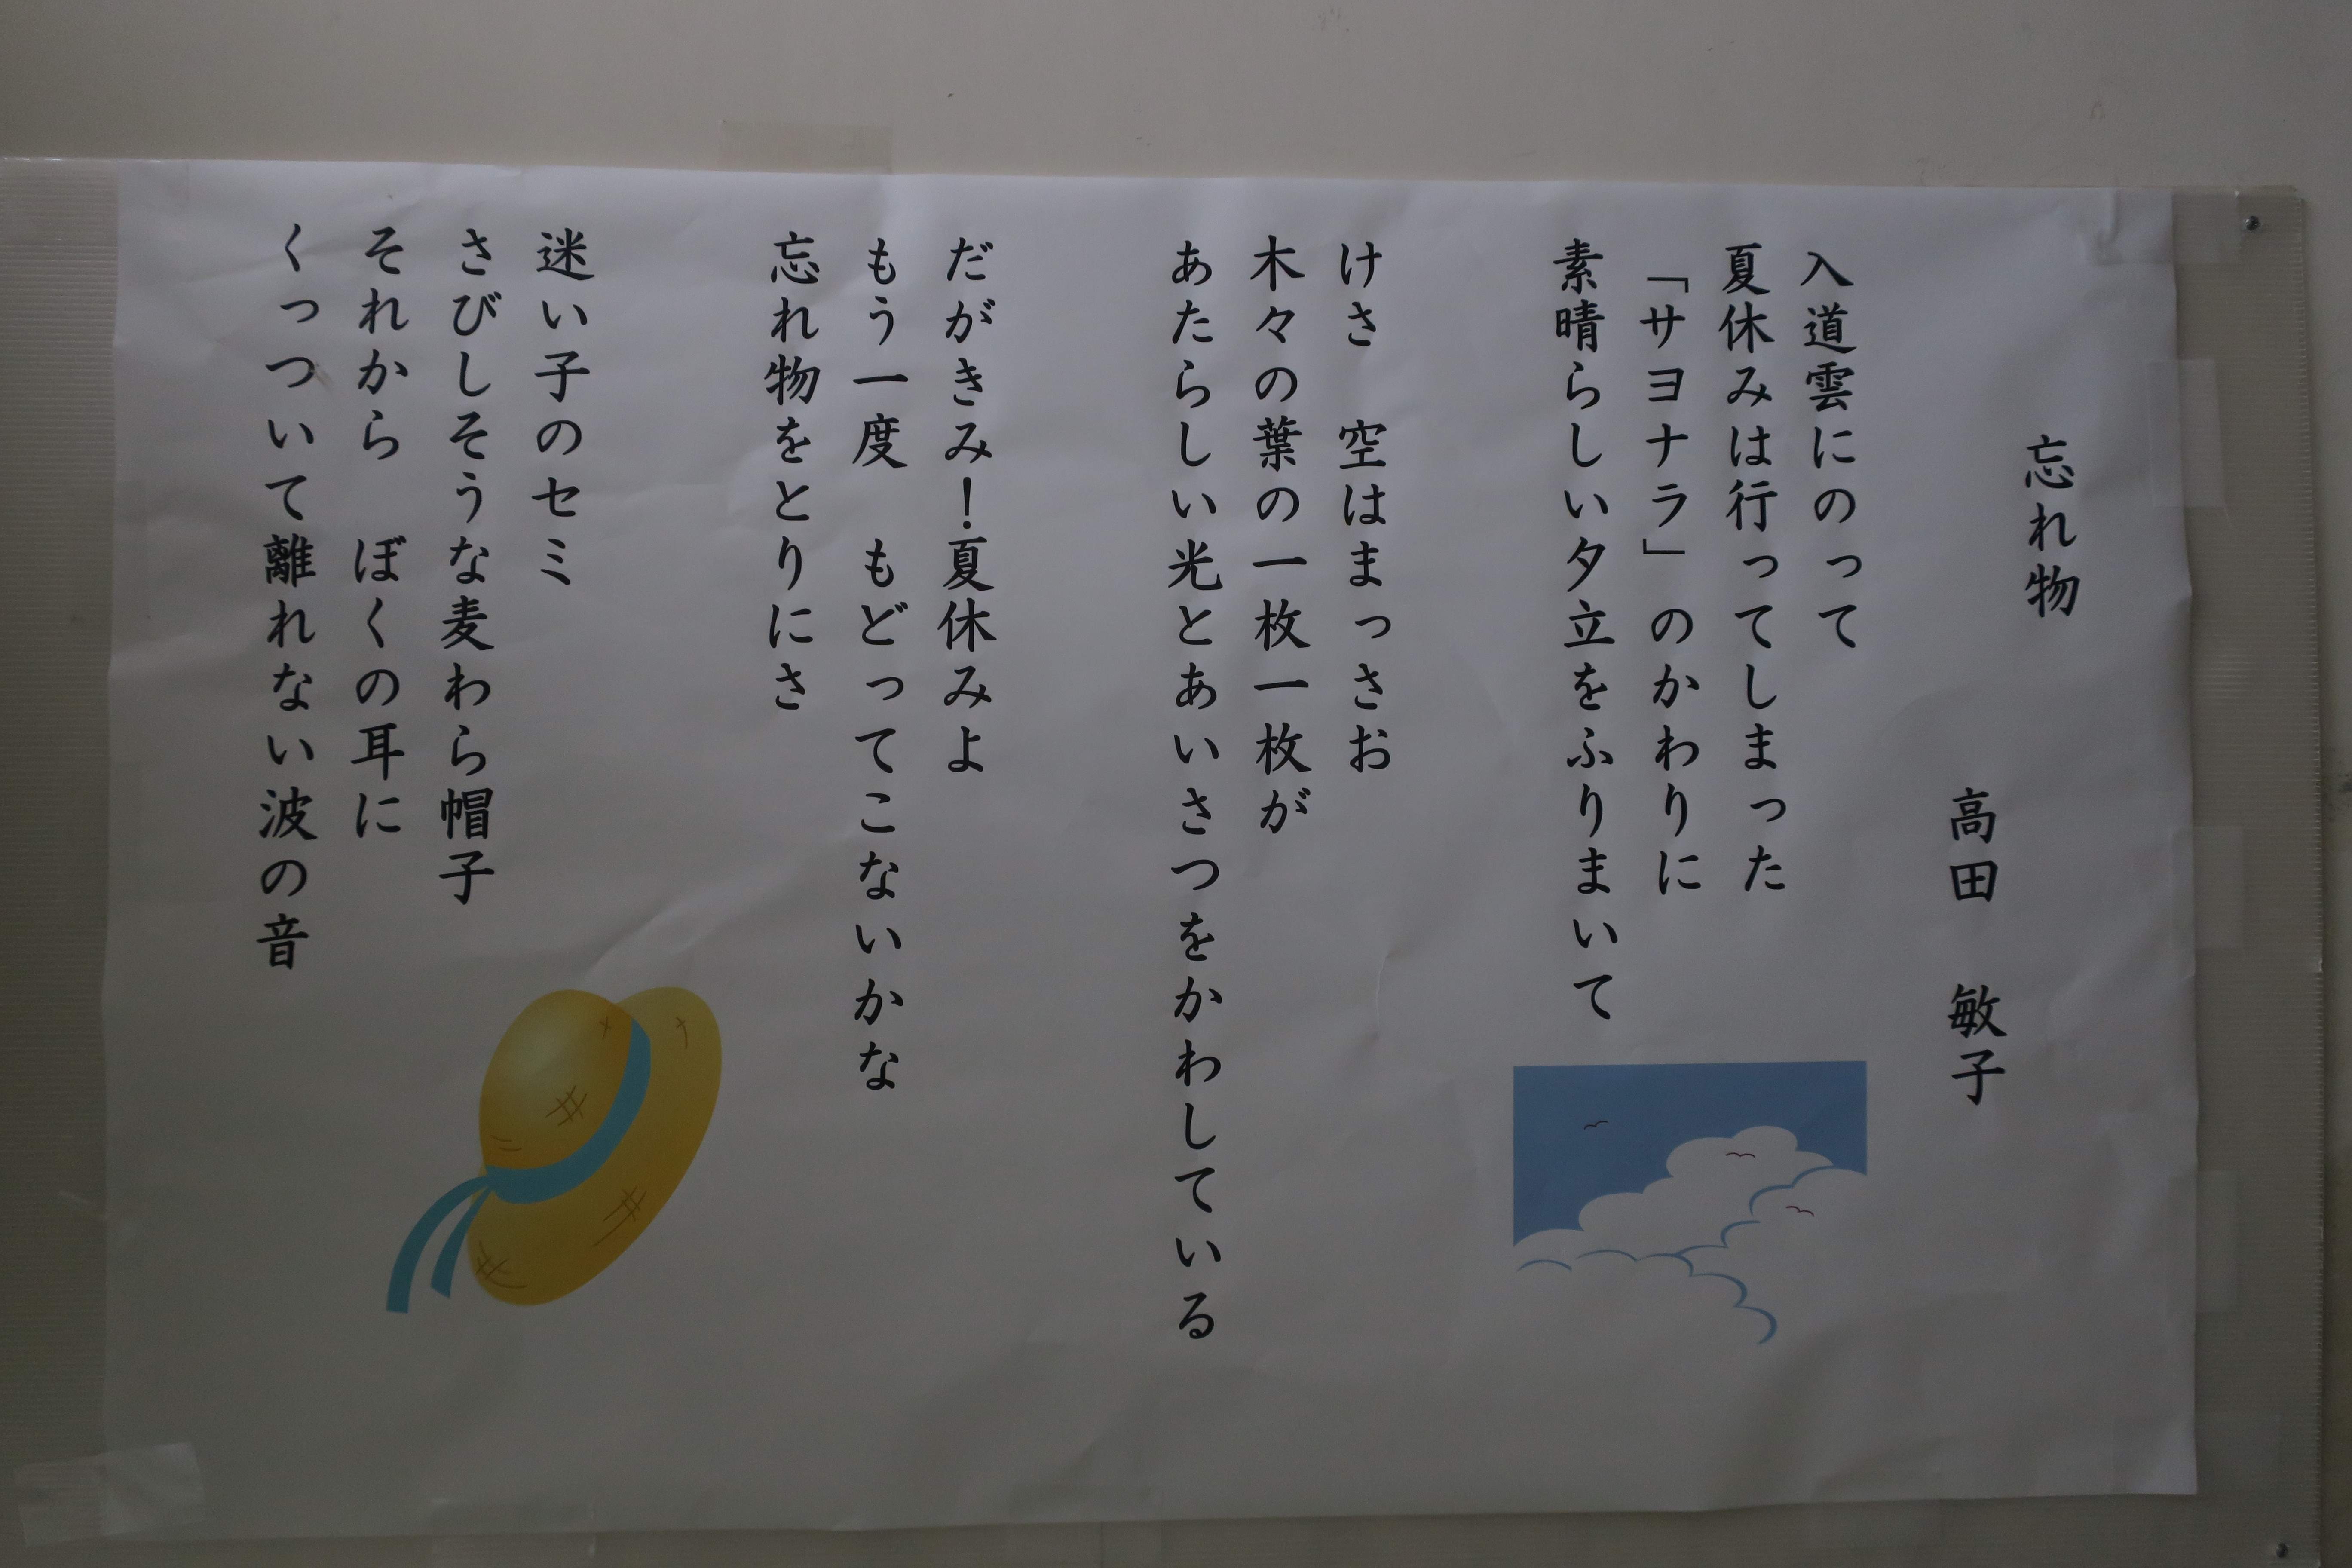 忘れ物
高田　敏子
入道雲にのって
夏休みは行ってしまった
「サヨナラ」のかわりに
素晴らしい夕立をふりまいて
けさ　空はまっさお
木々の葉の一枚一枚が
あたらしい光とあいさつをかわしている
だがきみ！夏休みよ
もう一度　もどってこないかな
忘れ物をとりにさ
迷い子のセミ
さびしそうな麦わら帽子
それから　ぼくの耳に
くっついて離れない波の音